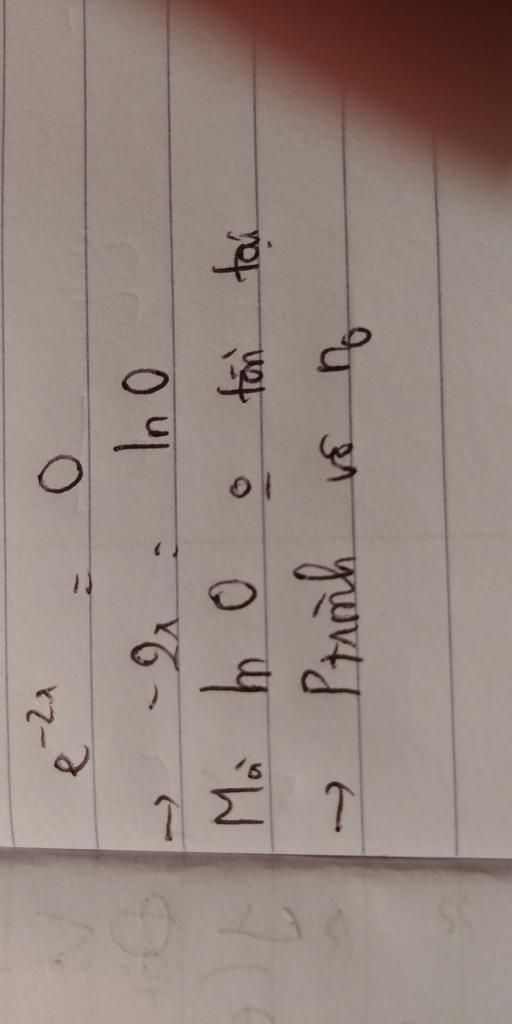 e⁻²ˣ = 0
→ -2x = ln 0
Mà ln 0 o̲ tồn tại
→ Ptrình vô n₀